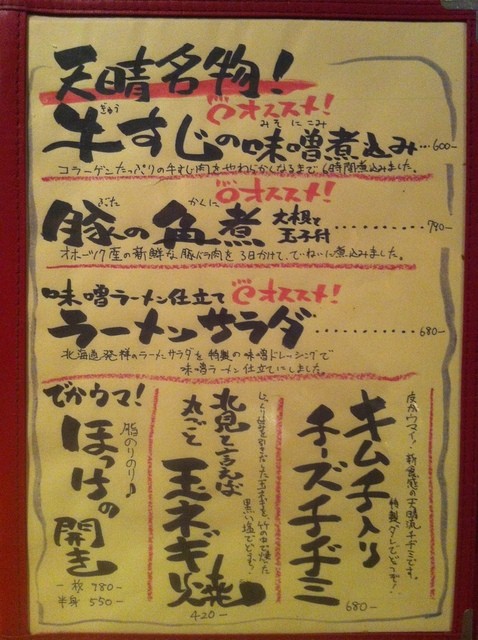 天晴名物!
オススメ!
ぎゅう
みそ にこみ
牛すじの味噌煮込み…600-
コラーゲンたっぷりの牛すじ肉をやわらかくなるまで6時間煮込みました。
オススメ!
ぶた
かくに
豚の角煮 大根と玉子付………790-
オホーツク産の新鮮な豚バラ肉を3日かけて、ていねいに煮込みました。
味噌ラーメン仕立て オススメ!
ラーメンサラダ………680-
北海道発祥のラーメンサラダを特製の味噌ドレッシングで
味噌ラーメン仕立てにしました。
キムチ入り
チーズチヂミ
皮がウマイ!新食感の天晴流チヂミです。
特製ダレでどうぞ!
680-
北見と言えば
丸ごと玉ネギ焼
黒い塩でどうぞ!
420-
でかウマ!
脂のりのり♪
ほっけの開き
一枚 980-
半身 550-